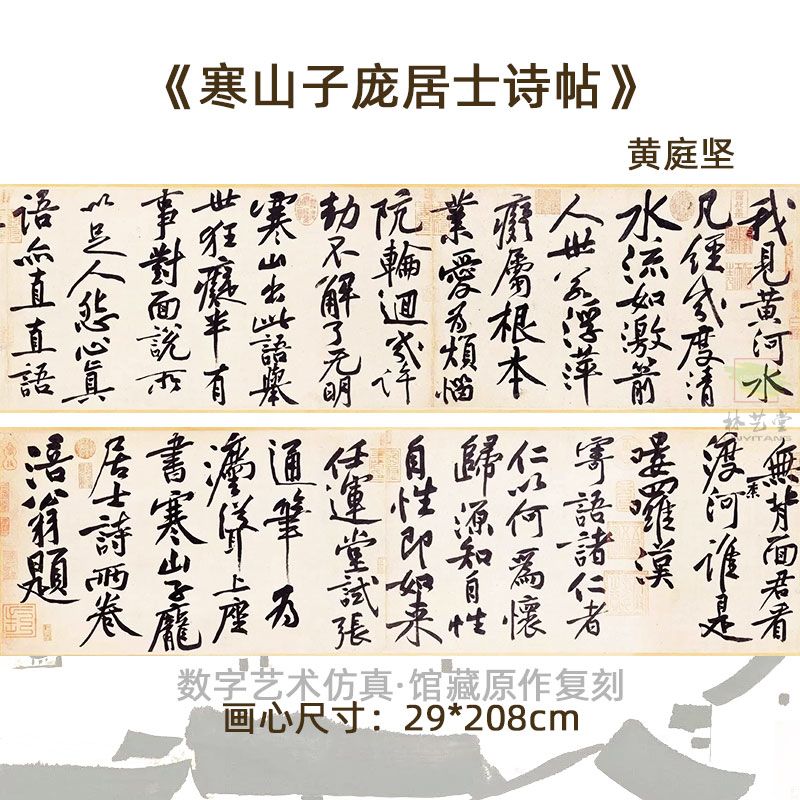 《寒山子庞居士诗帖》
黄庭坚
我見黃河水
凡經幾度清
水流如激箭
人世若浮萍
癡屬根本
業愛為煩惱
阬輪迴幾許
劫不解了无明
寒山出此語舉
世狂癡半有
事對面說所
以足人怨心真
語亦直直語
無背面君看
渡河誰是
嘍囉漢
寄語諸仁者
仁以何為懷
歸源知自性
自性即如来
任運堂試張
通筆為
灋聳上座
書寒山子龐
居士詩兩卷
涪翁題
林艺堂
数字艺术仿真·馆藏原作复刻
画心尺寸：29*208cm